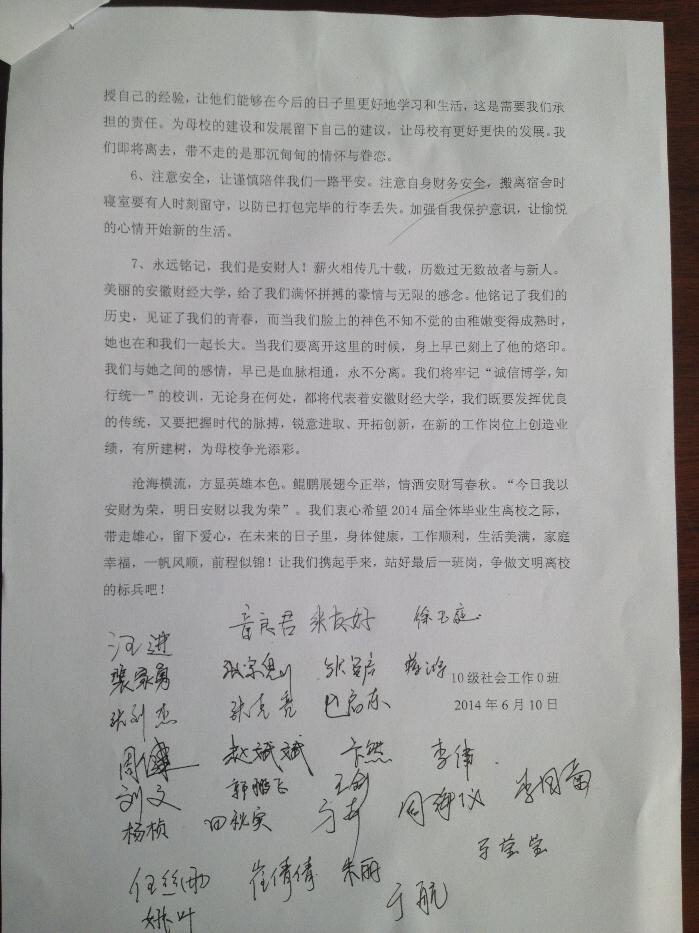 授自己的经验，让他们能够在今后的日子里更好地学习和生活，这是需要我们承
担的责任。为母校的建设和发展留下自己的建议，让母校有更好更快的发展。我
们即将离去，带不走的是那沉甸甸的情怀与眷恋。
6、注意安全，让谨慎陪伴我们一路平安。注意自身财务安全，搬离宿舍时
寝室要有人时刻留守，以防已打包完毕的行李丢失。加强自我保护意识，让愉悦
的心情开始新的生活。
7、永远铭记，我们是安财人！薪火相传几十载，历数过无数故者与新人。
美丽的安徽财经大学，给了我们满怀拼搏的豪情与无限的感念。他铭记了我们的
历史，见证了我们的青春，而当我们脸上的神色不知不觉的由稚嫩变得成熟时，
她也在和我们一起长大。当我们要离开这里的时候，身上早已刻上了他的烙印。
我们与她之间的感情，早已是血脉相通，永不分离。我们将牢记“诚信博学，知
行统一”的校训，无论身在何处，都将代表着安徽财经大学，我们既要发挥优良
的传统，又要把握时代的脉搏，锐意进取、开拓创新，在新的工作岗位上创造业
绩，有所建树，为母校争光添彩。
沧海横流，方显英雄本色。鲲鹏展翅今正举，情洒安财写春秋。“今日我以
安财为荣，明日安财以我为荣”。我们衷心希望 2014 届全体毕业生离校之际，
带走雄心，留下爱心，在未来的日子里，身体健康，工作顺利，生活美满，家庭
幸福，一帆风顺，前程似锦！让我们携起手来，站好最后一班岗，争做文明离校
的标兵吧！
章良君 张友好 徐玉庭
汪进
裴家勇
10 级社会工作 0 班
张利杰 张克亮
2014 年 6 月 10 日
赵斌斌 卞然 李伟
刘文 郭鹏飞 王剑
杨桢 田秋实
于莹莹
任丝雨 崔倩倩 朱丽
于航
姚叶